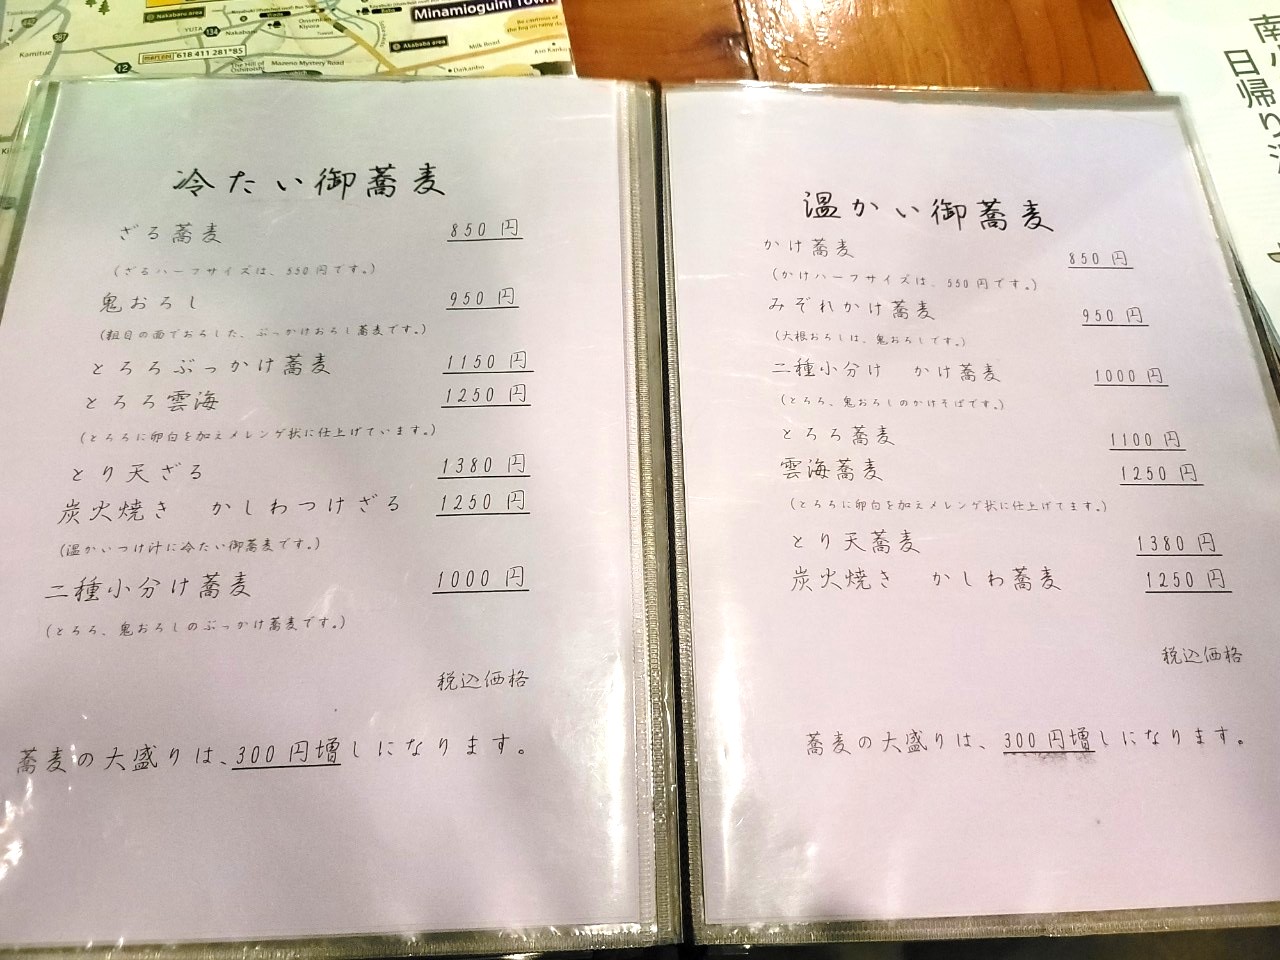 Minamioguini Town
Nakabaru area
YUTA
134
Nakabaru
Onsenkan
Kiyora
387
Kamitue
12
mapcode 618 411 281*85
The Hill of
Oshitoishi
Mazeno Mystery Road
Akababa area
Milk Road
Daikanbo
冷たい御蕎麦
ざる蕎麦 850 円
(ざるハーフサイズは、550円です。)
鬼おろし 950 円
(粗目の面でおろした、ぶっかけおろし蕎麦です。)
とろろぶっかけ蕎麦 1150 円
とろろ雲海 1250 円
(とろろに卵白を加えメレンゲ状に仕上げています。)
とり天ざる 1380 円
炭火焼き かしわつけざる 1250 円
(温かいつけ汁に冷たい御蕎麦です。)
二種小分け蕎麦 1000 円
(とろろ、鬼おろしのぶっかけ蕎麦です。)
税込価格
蕎麦の大盛りは、300 円増しになります。
温かい御蕎麦
かけ蕎麦 850 円
(かけハーフサイズは、550円です。)
みぞれかけ蕎麦 950 円
(大根おろしは、鬼おろしです。)
二種小分け かけ蕎麦 1000 円
(とろろ、鬼おろしのかけそばです。)
とろろ蕎麦 1100 円
雲海蕎麦 1250 円
(とろろに卵白を加えメレンゲ状に仕上げてます。)
とり天蕎麦 1380 円
炭火焼き かしわ蕎麦 1250 円
税込価格
蕎麦の大盛りは、300 円増しになります。
日帰り